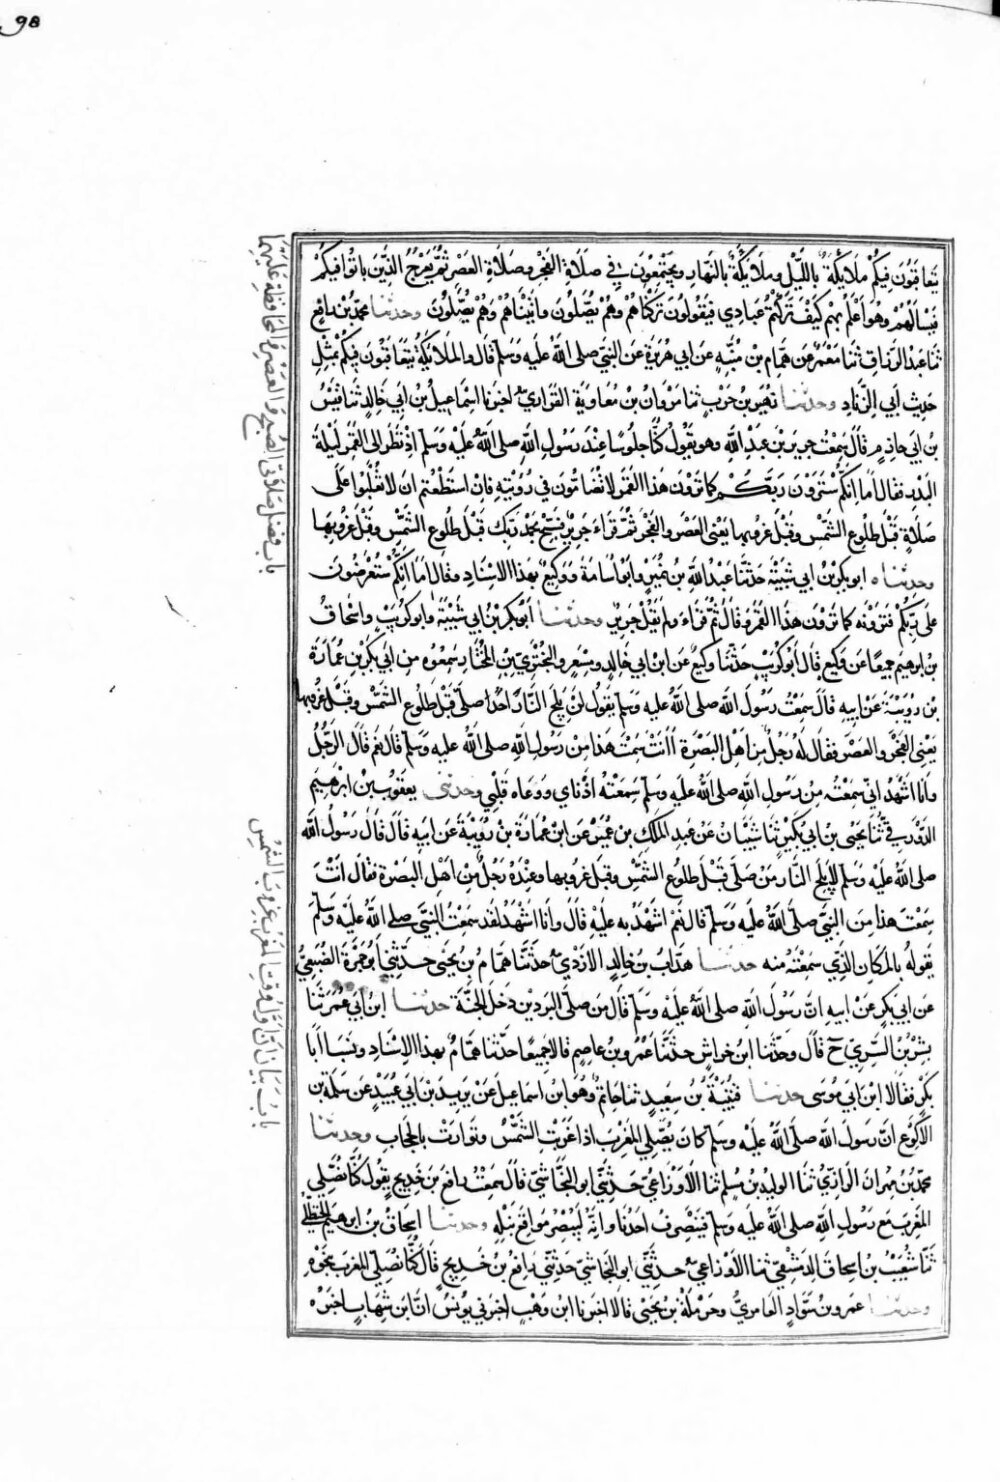 98
يتعاقبون فيكم ملائكة بالليل وملائكة بالنهار ويجتمعون في صلاة الفجر وصلاة العصر ثم يعرج الذين باتوا فيكم
فيسالهم وهو اعلم بهم كيف تركتم عبادي فيقولون تركناهم وهم يصلون واتيناهم وهم يصلون وحدثنا محمد بن رافع
ثنا عبد الرزاق ثنا معمر عن همام بن منبه عن ابي هريرة عن النبي صلى الله عليه وسلم قال والملائكة يتعاقبون فيكم بمثل
حديث ابي الزناد وحدثنا زهير بن حرب ثنا مروان بن معاوية الفزاري اخبرنا اسماعيل بن ابي خالد ثنا قيس
بن ابي حازم قال سمعت جرير بن عبد الله وهو يقول كنا جلوسا عند رسول الله صلى الله عليه وسلم اذ نظر الى القمر ليلة
البدر فقال اما انكم سترون ربكم كما ترون هذا القمر لا تضامون في رؤيته فان استطعتم ان لا تغلبوا على
صلاة قبل طلوع الشمس وقبل غروبها يعني العصر والفجر ثم قراء جرير فسبح بحمد ربك قبل طلوع الشمس وقبل غروبها
وحدثناه ابو بكر بن ابي شيبة حدثنا عبد الله بن نمير وابو اسامة ووكيع بهذا الاسناد وقال اما انكم ستعرضون
على ربكم فترونه كما ترون هذا القمر وقال ثم قراء ولم يقل جرير وحدثنا ابو بكر بن ابي شيبة وابو كريب واسحاق
بن ابرهيم جميعا عن وكيع قال ابو كريب حدثنا وكيع عن ابن ابي خالد ومسعر والبختري بن المختار سمعوه من ابي بكر بن عمارة
بن رويبة عن ابيه قال سمعت رسول الله صلى الله عليه وسلم يقول لن يلج النار احد صلى قبل طلوع الشمس وقبل غروبها
يعني الفجر والعصر فقال له رجل من اهل البصرة اانت سمعت هذا من رسول الله صلى الله عليه وسلم قال نعم قال الرجل
وانا اشهد اني سمعته من رسول الله صلى الله عليه وسلم سمعته اذناي ووعاه قلبي وحدثني يعقوب بن ابرهيم
الدورقي ثنا يحيى بن ابي بكير ثنا شيبان عن عبد الملك بن عمير عن ابن عمارة بن رويبة عن ابيه قال قال رسول الله
صلى الله عليه وسلم لا يلج النار من صلى قبل طلوع الشمس وقبل غروبها وعنده رجل من اهل البصرة فقال انت
سمعت هذا من النبي صلى الله عليه وسلم قال نعم اشهد به عليه قال وانا اشهد لقد سمعت النبي صلى الله عليه وسلم
يقوله بالمكان الذي سمعته منه حدثنا هداب بن خالد الازدي حدثنا همام بن يحيى حدثني ابو جمرة الضبعي
عن ابي بكر عن ابيه ان رسول الله صلى الله عليه وسلم قال من صلى البردين دخل الجنة حدثنا ابن ابي عمر ثنا
بشر بن السري ح قال وحدثنا ابن خراش حدثنا عمرو بن عاصم قالا جميعا حدثنا همام بهذا الاسناد ونسبا ابا
بكر فقالا ابن ابي موسى حدثنا قتيبة بن سعيد ثنا حاتم وهو ابن اسماعيل عن يزيد بن ابي عبيد عن سلمة بن
الاكوع ان رسول الله صلى الله عليه وسلم كان يصلي المغرب اذا غربت الشمس وتوارت بالحجاب وحدثنا
محمد بن مهران الرازي ثنا الوليد بن مسلم ثنا الاوزاعي حدثني ابو النجاشي قال سمعت رافع بن خديج يقول كنا نصلي
المغرب مع رسول الله صلى الله عليه وسلم فينصرف احدنا وانه ليبصر مواقع نبله وحدثنا اسحاق بن ابرهيم الحنظلي
ثنا شعيب بن اسحاق الدمشقي ثنا الاوزاعي حدثني ابو النجاشي حدثني رافع بن خديج قال كنا نصلي المغرب بنحوه
وحدثنا عمرو بن سواد العامري وحرملة بن يحيى قالا اخبرنا ابن وهب اخبرني يونس ان ابن شهاب اخبره
باب فضل صلاتي الصبح والعصر والمحافظة عليهما
باب بيان ان اول وقت المغرب غروب الشمس